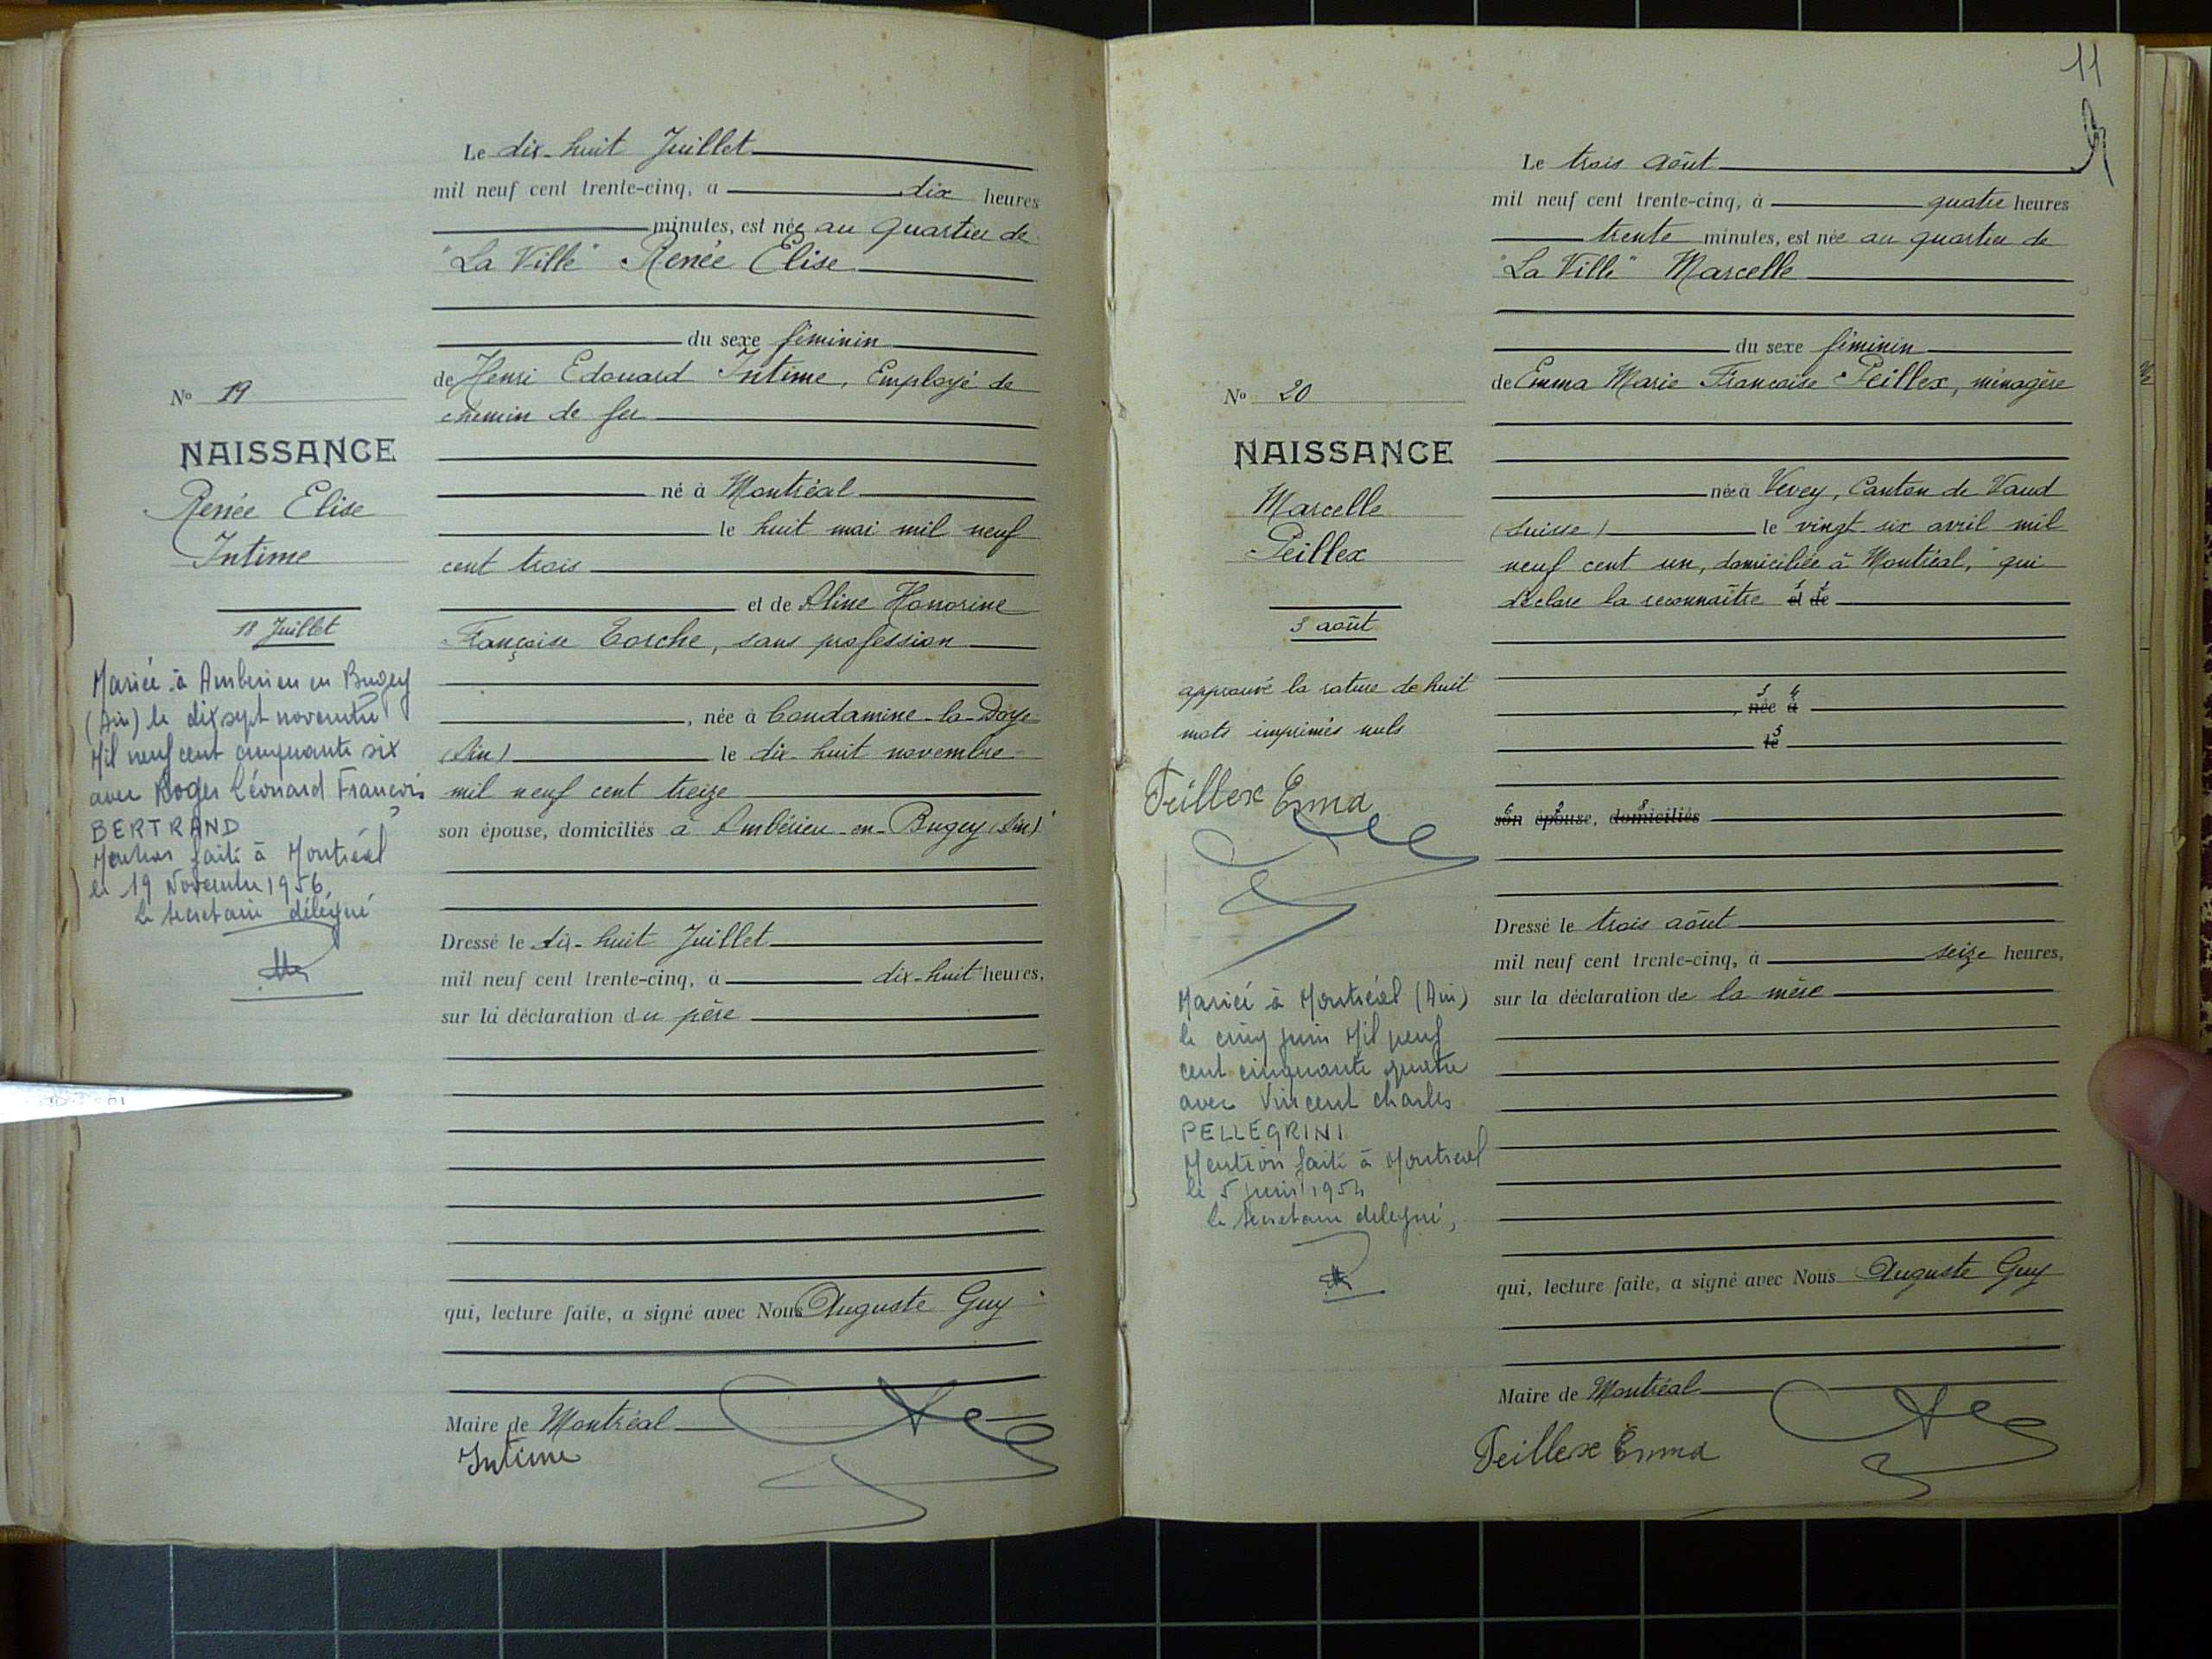 Le dix-huit Juillet
mil neuf cent trente-cinq, à dix heures
minutes, est née au quartier de
"La Ville" Renée Elise
du sexe féminin
de Henri Edouard Intime, Employé de
chemin de fer
né à Montréal
le huit mai mil neuf
cent trois
et de Aline Honorine
Françoise Torche, sans profession
, née à Condamine-la-Doye
(Ain) le dix-huit novembre
mil neuf cent treize
son épouse, domiciliés à Ambérieu-en-Bugey (Ain)
Dressé le dix-huit Juillet
mil neuf cent trente-cinq, à dix-huit heures,
sur la déclaration du père
qui, lecture faite, a signé avec Nous Auguste Guy
Maire de Montréal
Intime
No 19
NAISSANCE
Renée Elise
Intime
18 Juillet
Mariée à Ambérieu en Bugey
(Ain) le dix sept novembre
Mil neuf cent cinquante six
avec Roger Léonard François
BERTRAND
Mention faite à Montréal
le 19 Novembre 1956,
le secretaire délégué
11
Le trois août
mil neuf cent trente-cinq, à quatre heures
trente minutes, est née au quartier de
"La Ville" Marcelle
du sexe féminin
de Emma Marie Francoise Peillex, ménagère
née à Vevey, Canton de Vaud
(Suisse) le vingt six avril mil
neuf cent un, domiciliée à Montréal, qui
déclare la reconnaître 1 et 2 de
3 née 4 à
5 le
6 son 7 épouse, 8 domiciliés
Dressé le trois août
mil neuf cent trente-cinq, à seize heures,
sur la déclaration de la mère
qui, lecture faite, a signé avec Nous Auguste Guy
Maire de Montréal
Peillex Emma
No 20
NAISSANCE
Marcelle
Peillex
3 août
approuvé la rature de huit
mots imprimés nuls
Peillex Emma
Mariée à Montréal (Ain)
le cinq juin Mil neuf
cent cinquante quatre
avec Vincent Charles
PELLEGRINI
Mention faite à Montreal
le 5 juin 1954
le secretaire delegué,